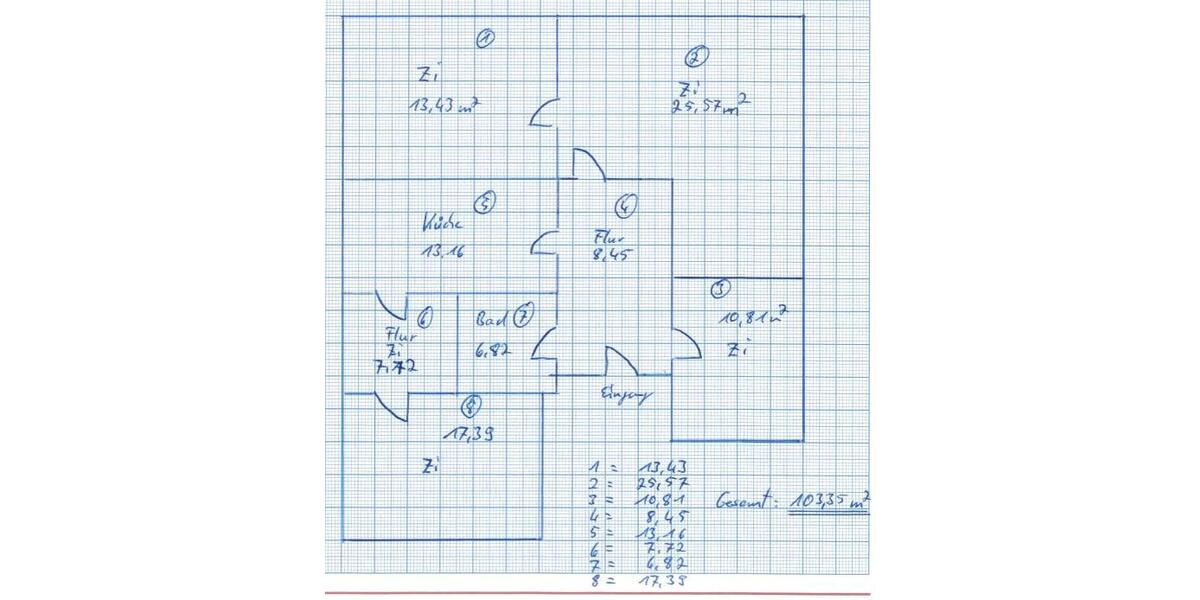 1
Zi
13,43 m²
2
Zi
25,57 m²
5
Küche
13,16
4
Flur
8,45
3
10,81 m²
Zi
6
Flur
Zi
7,72
Bad 7
6,82
Eingang
8
17,39
Zi
1 = 13,43
2 = 25,57
3 = 10,81
4 = 8,45
5 = 13,16
6 = 7,72
7 = 6,82
8 = 17,39
Gesamt: 103,35 m²